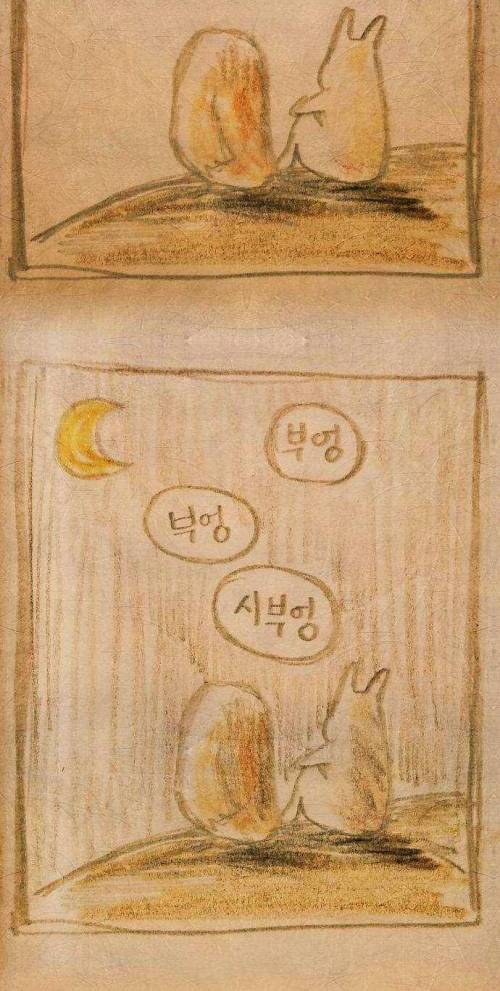 부엉
부엉
시부엉